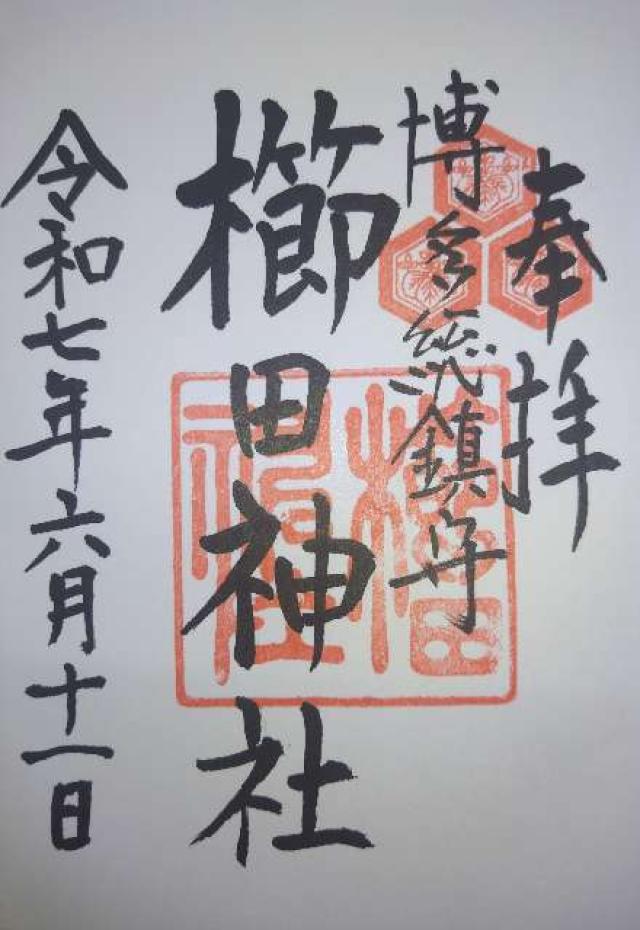 奉拝
博多総鎮守
櫛田神社
令和七年六月十一日